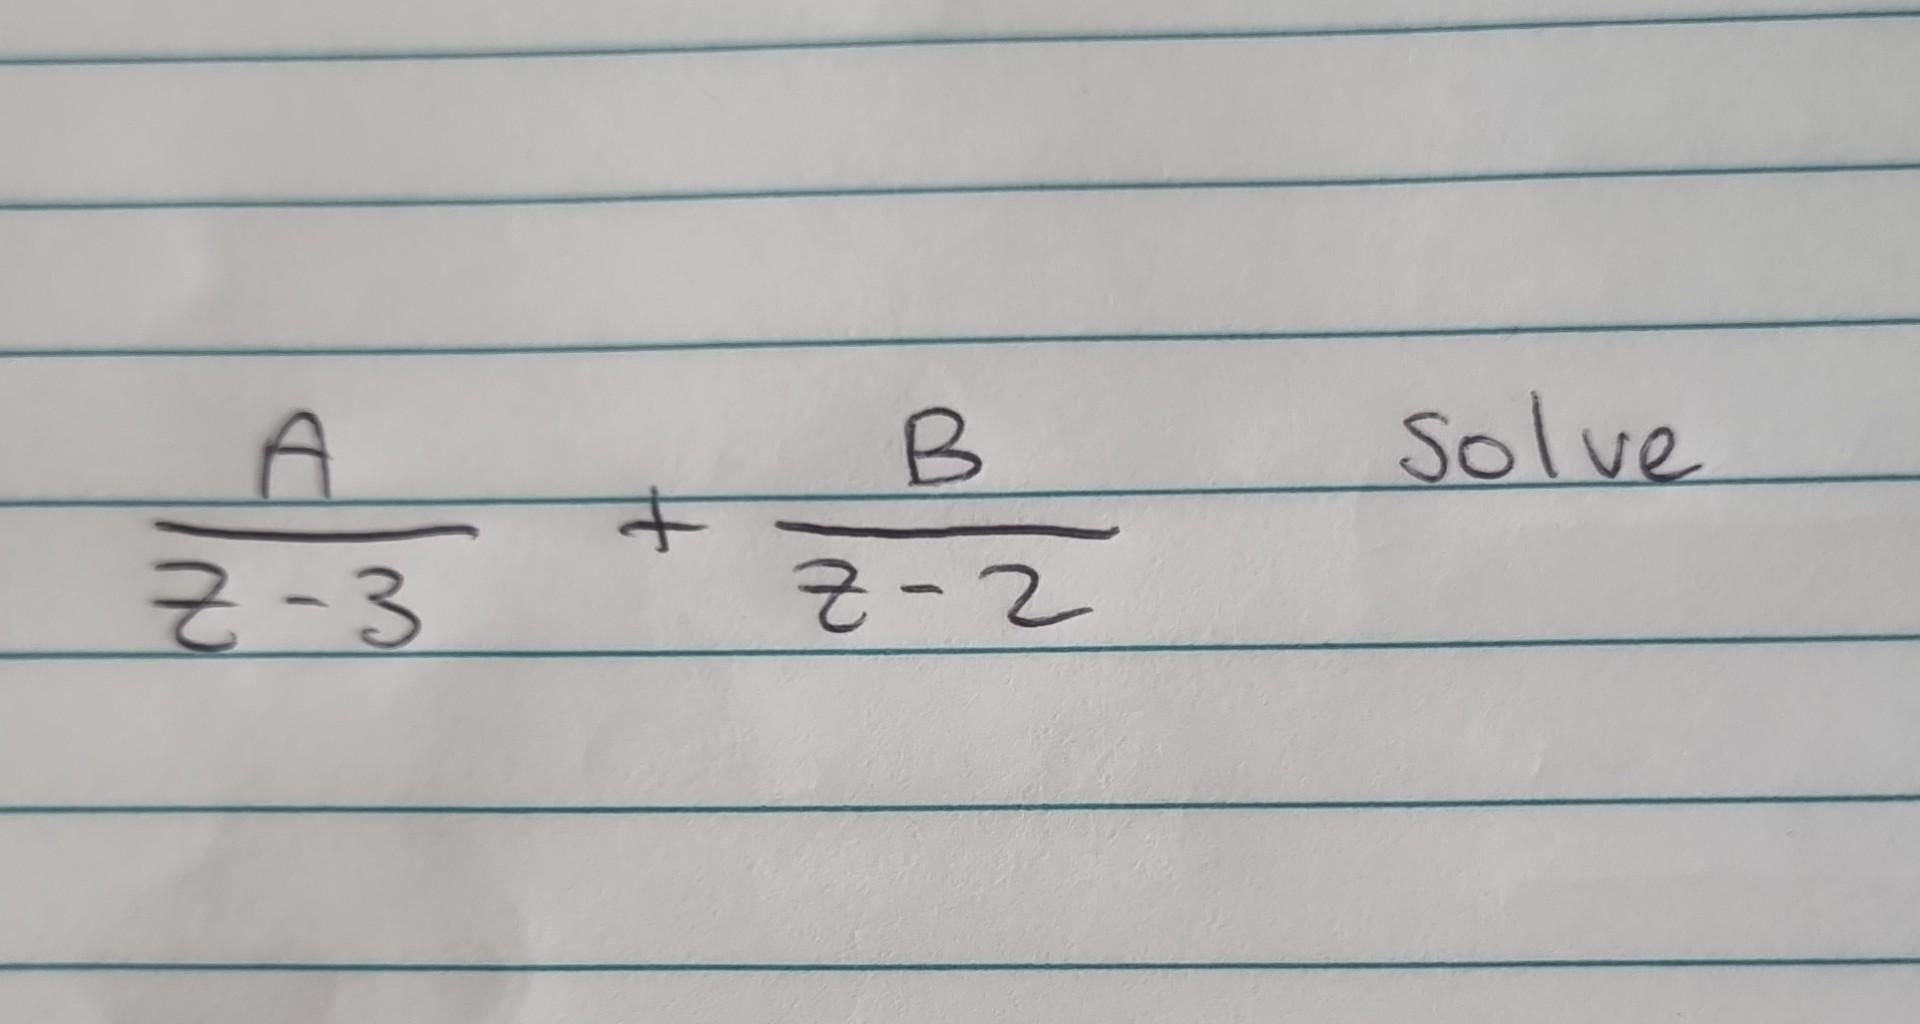 A/(z-3) + B/(z-2) Solve